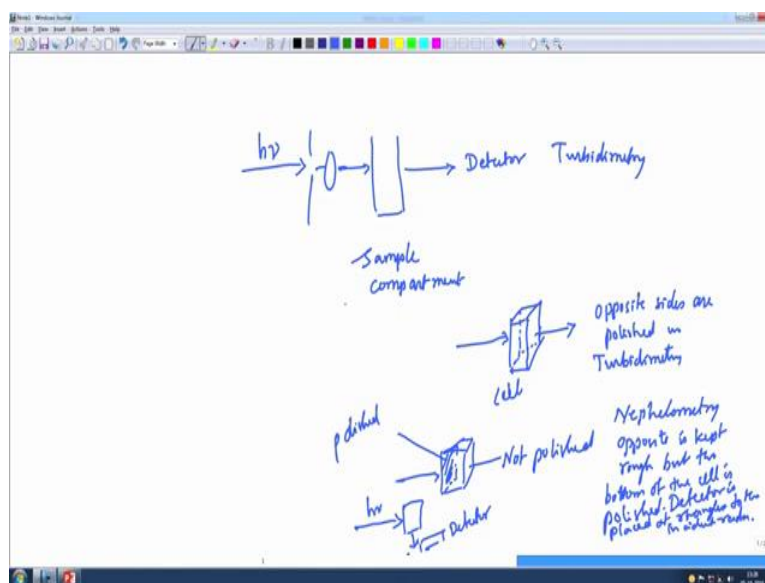 Note1 - Windows Journal
File Edit View Insert Actions Tools Help
Page Width
B I
hν
Detector Turbidimetry
Sample
compartment
opposite sides are
polished in
Turbidimetry
cell
polished
Not polished
Nephelometry
opposite is kept
rough but the
bottom of the cell is
polished. Detector is
placed at rt angles to the
hν
Detector
1